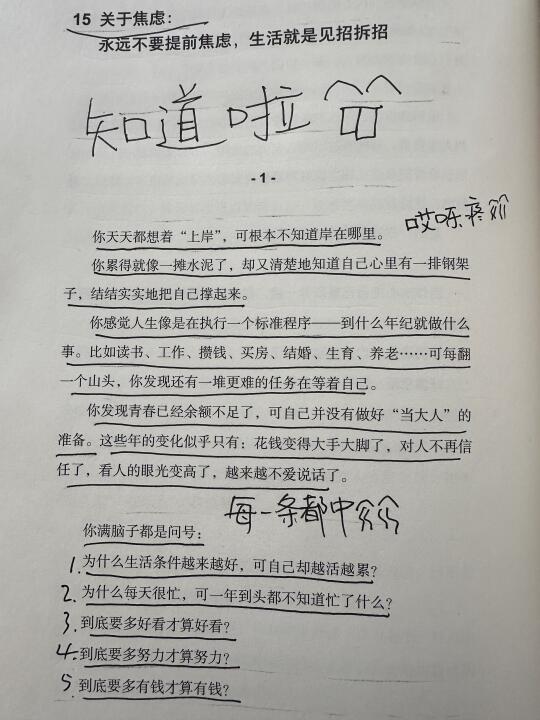 15 关于焦虑：
永远不要提前焦虑，生活就是见招拆招
知道啦
- 1 -
哎呀疼
你天天都想着“上岸”，可根本不知道岸在哪里。
你累得就像一摊水泥了，却又清楚地知道自己心里有一排钢架
子，结结实实地把自己撑起来。
你感觉人生像是在执行一个标准程序——到什么年纪就做什么
事。比如读书、工作、攒钱、买房、结婚、生育、养老……可每翻
一个山头，你发现还有一堆更难的任务在等着自己。
你发现青春已经余额不足了，可自己并没有做好“当大人”的
准备。这些年的变化似乎只有：花钱变得大手大脚了，对人不再信
任了，看人的眼光变高了，越来越不爱说话了。
每一条都中
你满脑子都是问号：
1. 为什么生活条件越来越好，可自己却越活越累？
2. 为什么每天很忙，可一年到头都不知道忙了什么？
3. 到底要多好看才算好看？
4. 到底要多努力才算努力？
5 到底要多有钱才算有钱？